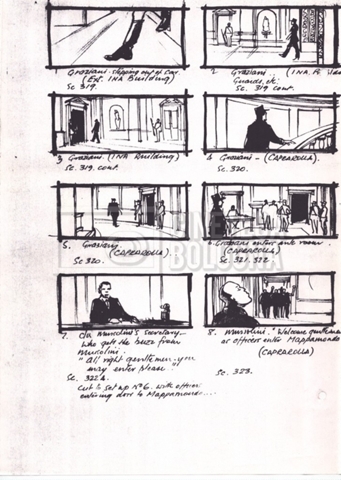 1 Graziani stepping out of car.
(Ext. INA Building)
Sc. 319.
2. Graziani (INA
Guards, etc.
Sc. 319 cont.
3 Graziani. (INA Building)
Sc. 319. cont.
4 Graziani - (CAPRAROLLA).
Sc. 320.
5. Graziani
(CAPRAROLLA)
Sc 320.
6. Graziani enters ante room.
(CAPRAROLLA)
Sc. 321. 322.
7. Mussolini's secretary
who gets the buzz from
Mussolini.
"All right gentlemen, you
may enter please."
Sc. 322A.
Cut to set up No 6. with officers
entering door to Mappamondo...
8. Mussolini. 'Welcome gentlemen'
as officers enter Mappamondo
(CAPRAROLLA)
Sc. 323.
CINE
BOLOGNA